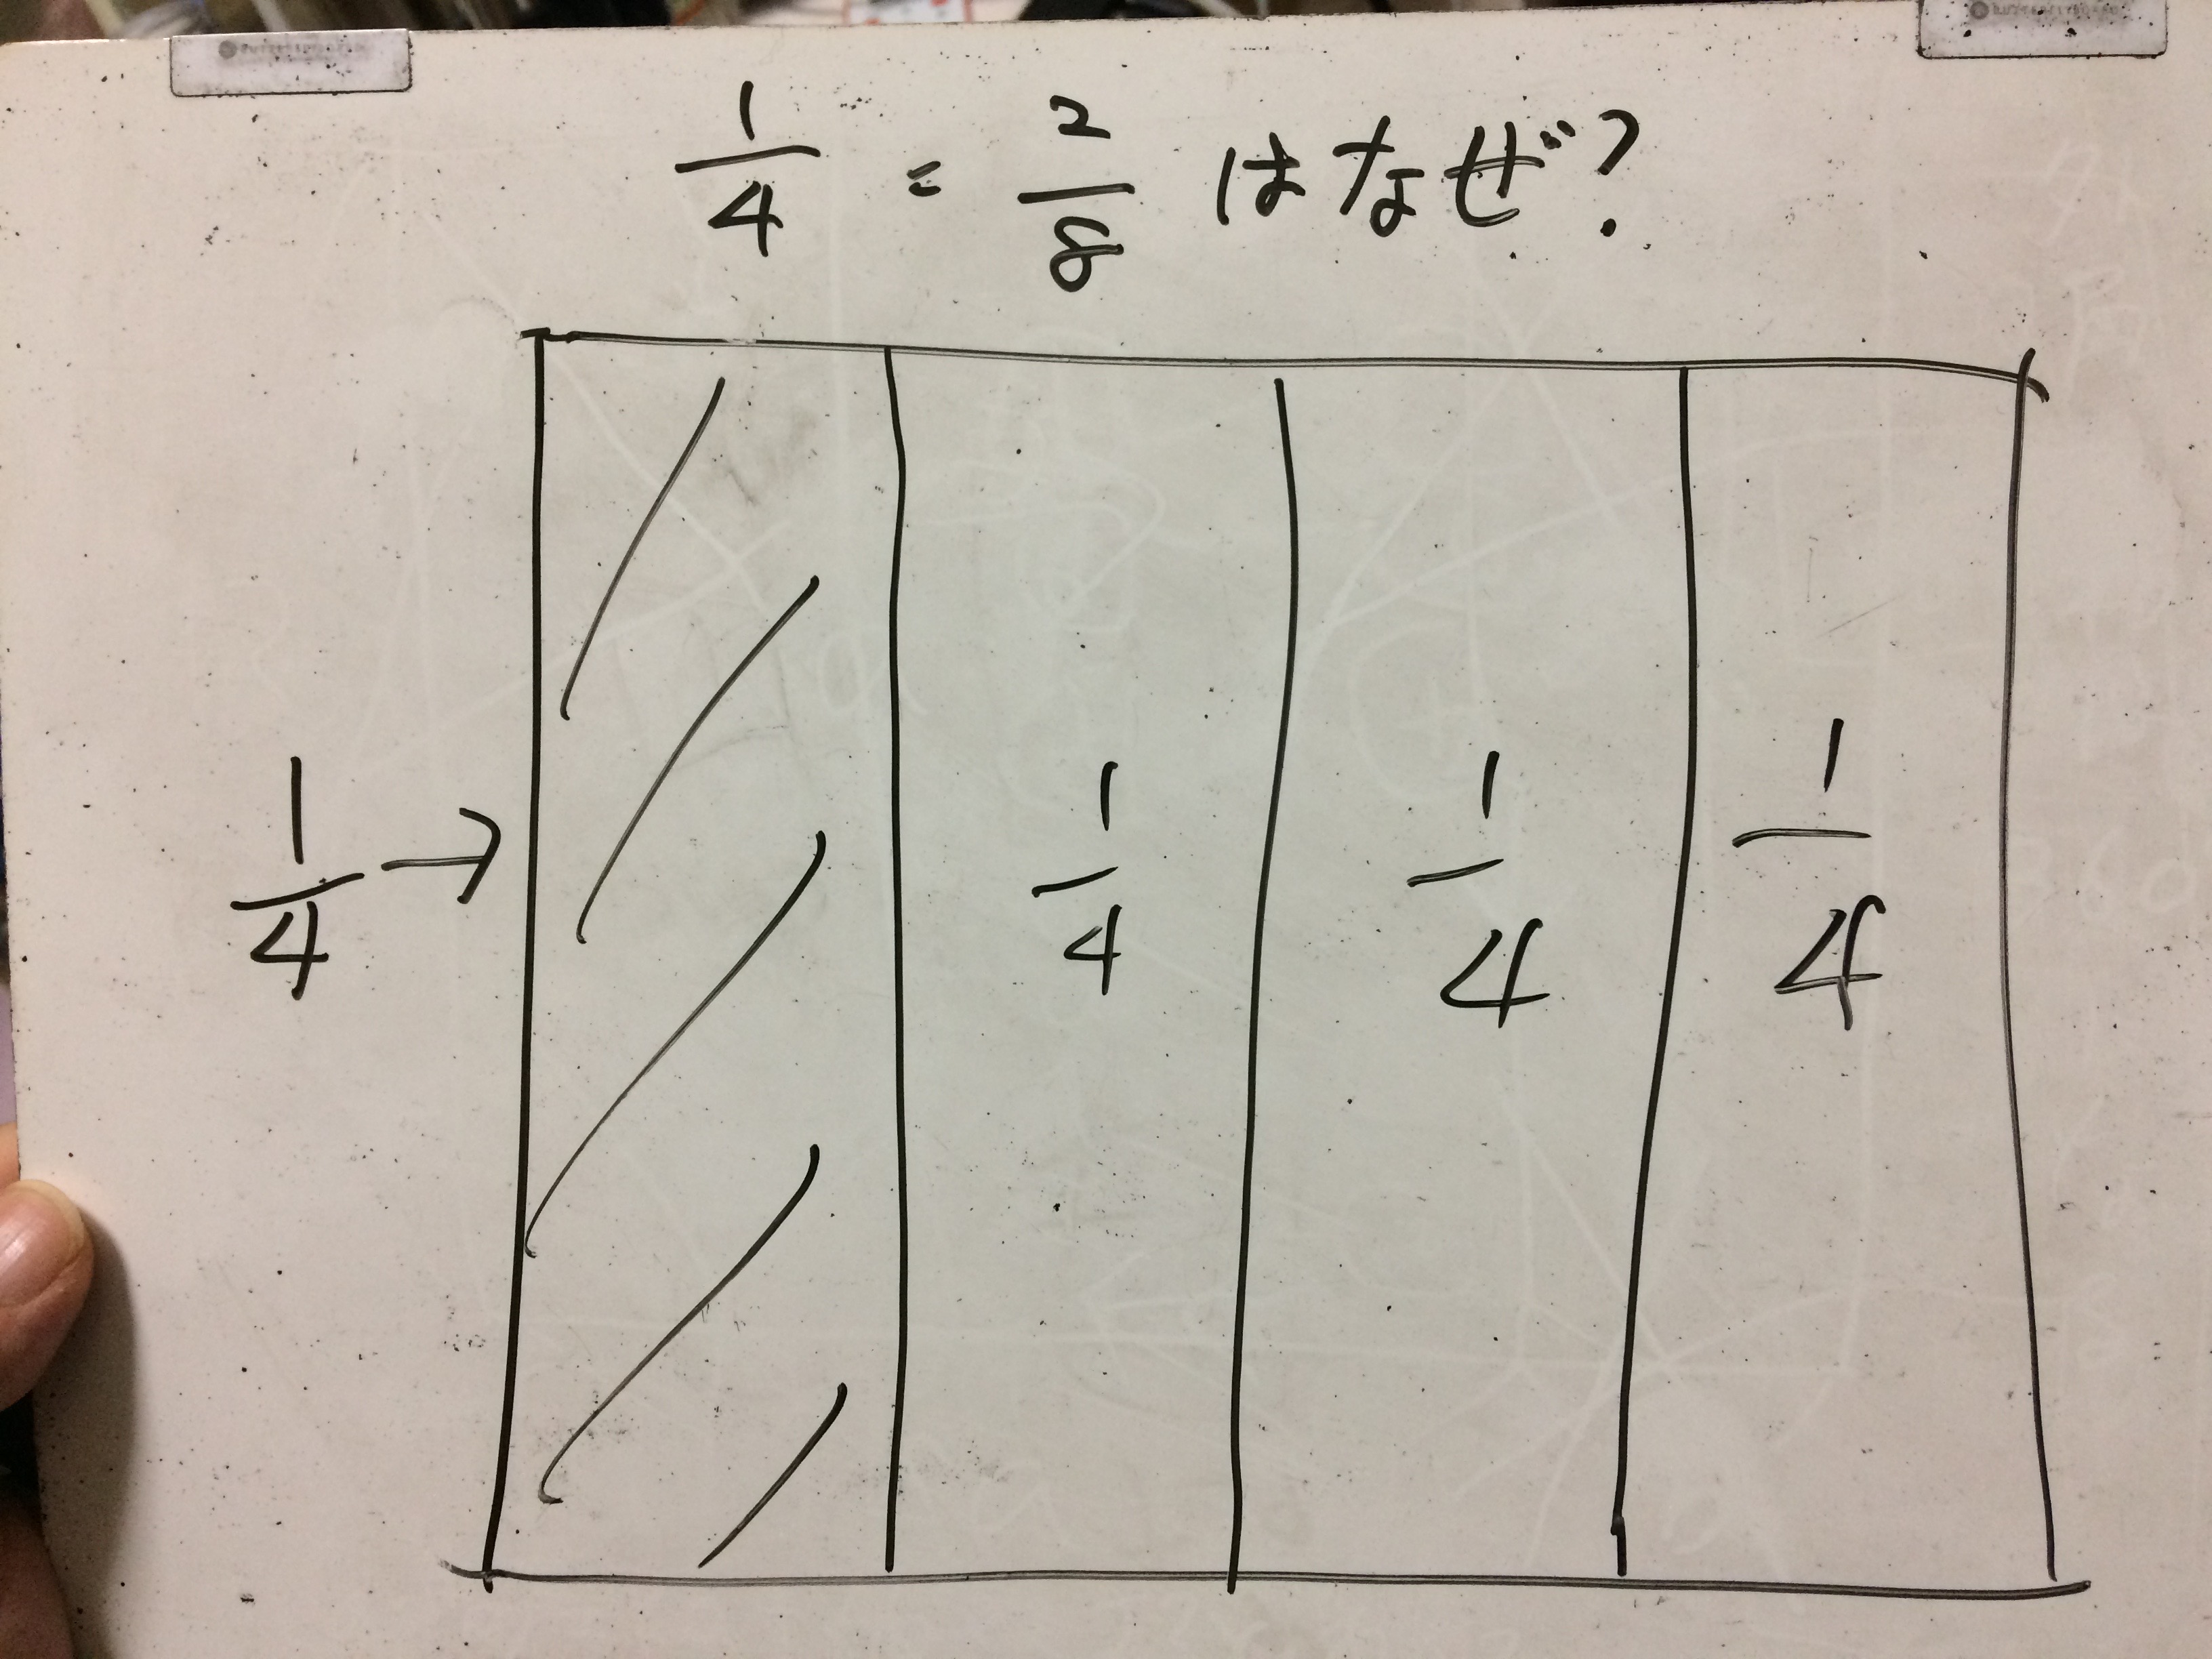 1/4 = 2/8 はなぜ?
1/4 →
1/4
1/4
1/4